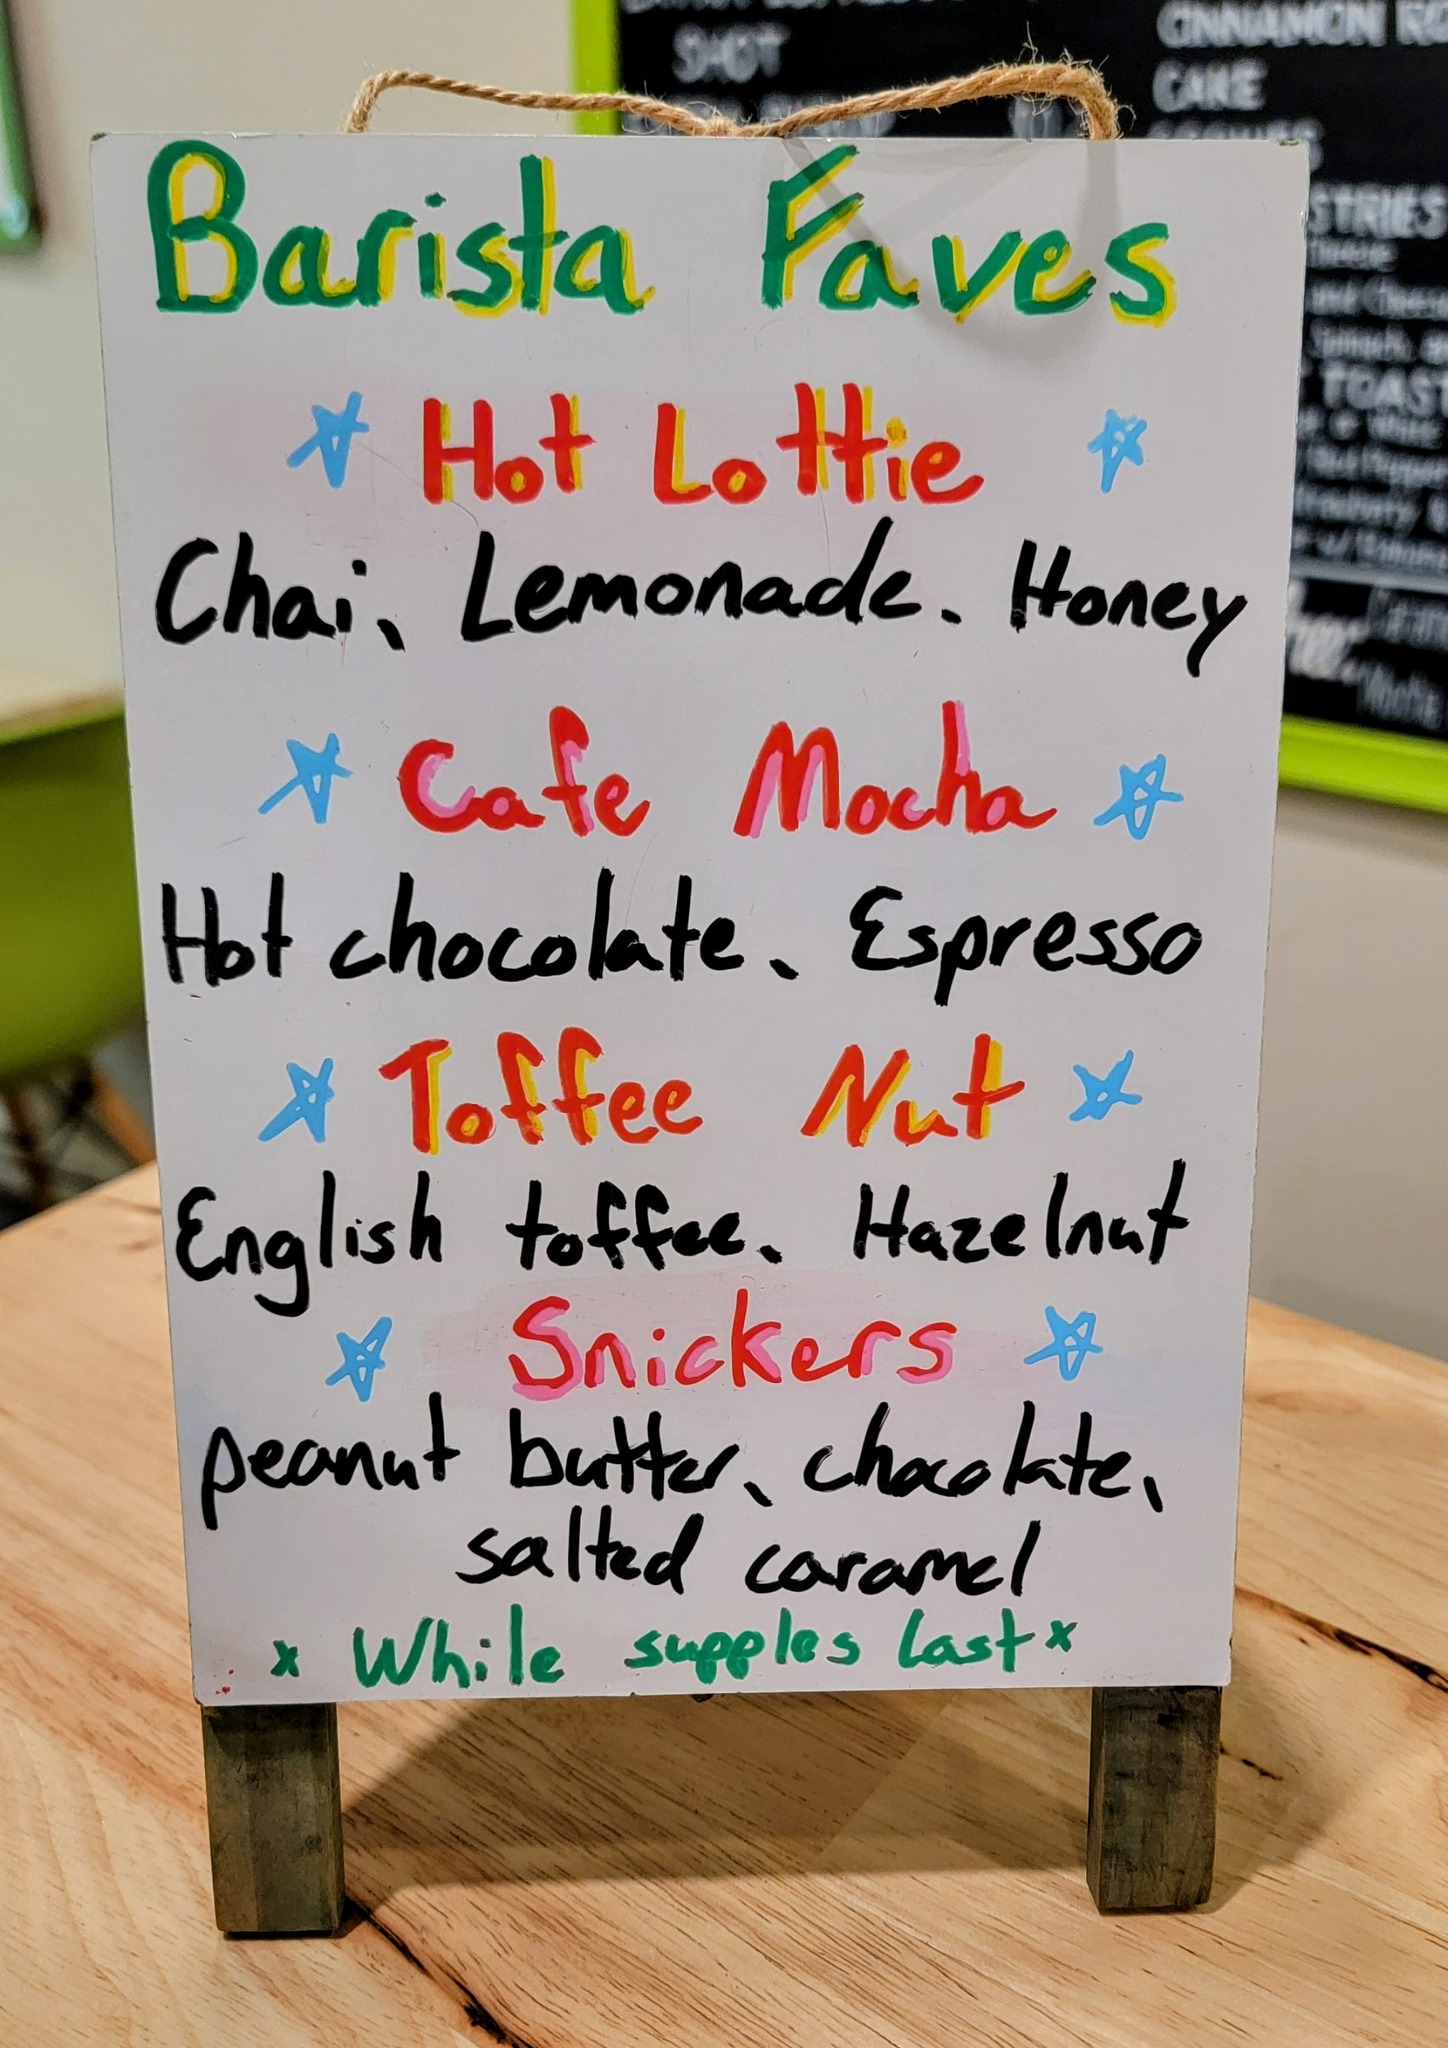 Barista Faves
Hot Lottie
Chai, Lemonade, Honey
Cafe Mocha
Hot chocolate, Espresso
Toffee Nut
English toffee, Hazelnut
Snickers
peanut butter, chocolate,
salted caramel
x While supples last x
SHOT
CINNAMON RO
CAKE
STRIES
TOAST